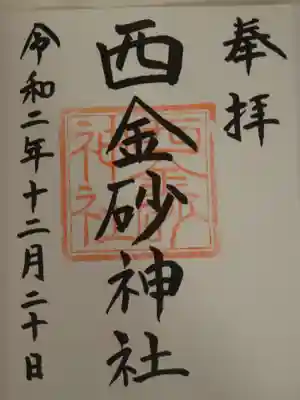 奉拝
西金砂神社
令和二年十二月二十日
西金砂神社